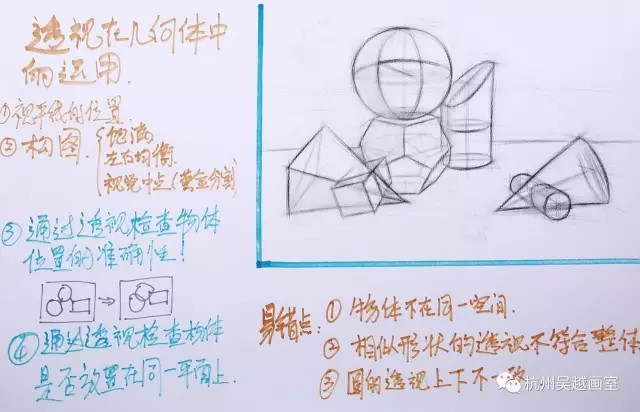 透视在几何体中
的运用.
①视平线的位置
②构图.
饱满
左右均衡
视觉中点(黄金分割)
③通过透视检查物体
位置的准确性!
④通过透视检查物体
是否放置在同一平面上.
易错点:①物体不在同一空间.
②相似形状的透视不符合整体
③圆的透视上下不一致
杭州吴越画室